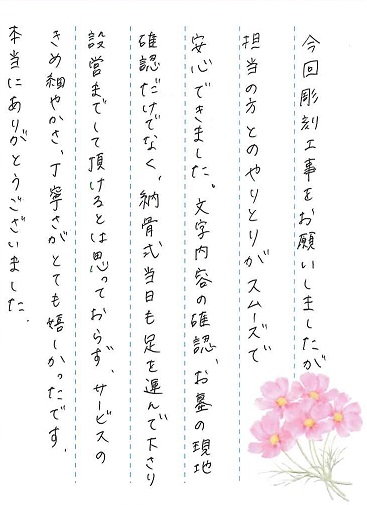 今回彫刻工事をお願いしましたが
担当の方とのやりとりがスムーズで
安心できました。文字内容の確認、お墓の現地
確認だけでなく、納骨式当日も足を運んで下さり
設営までして頂けるとは思っておらず、サービスの
きめ細やかさ、丁寧さがとても嬉しかったです。
本当にありがとうございました。